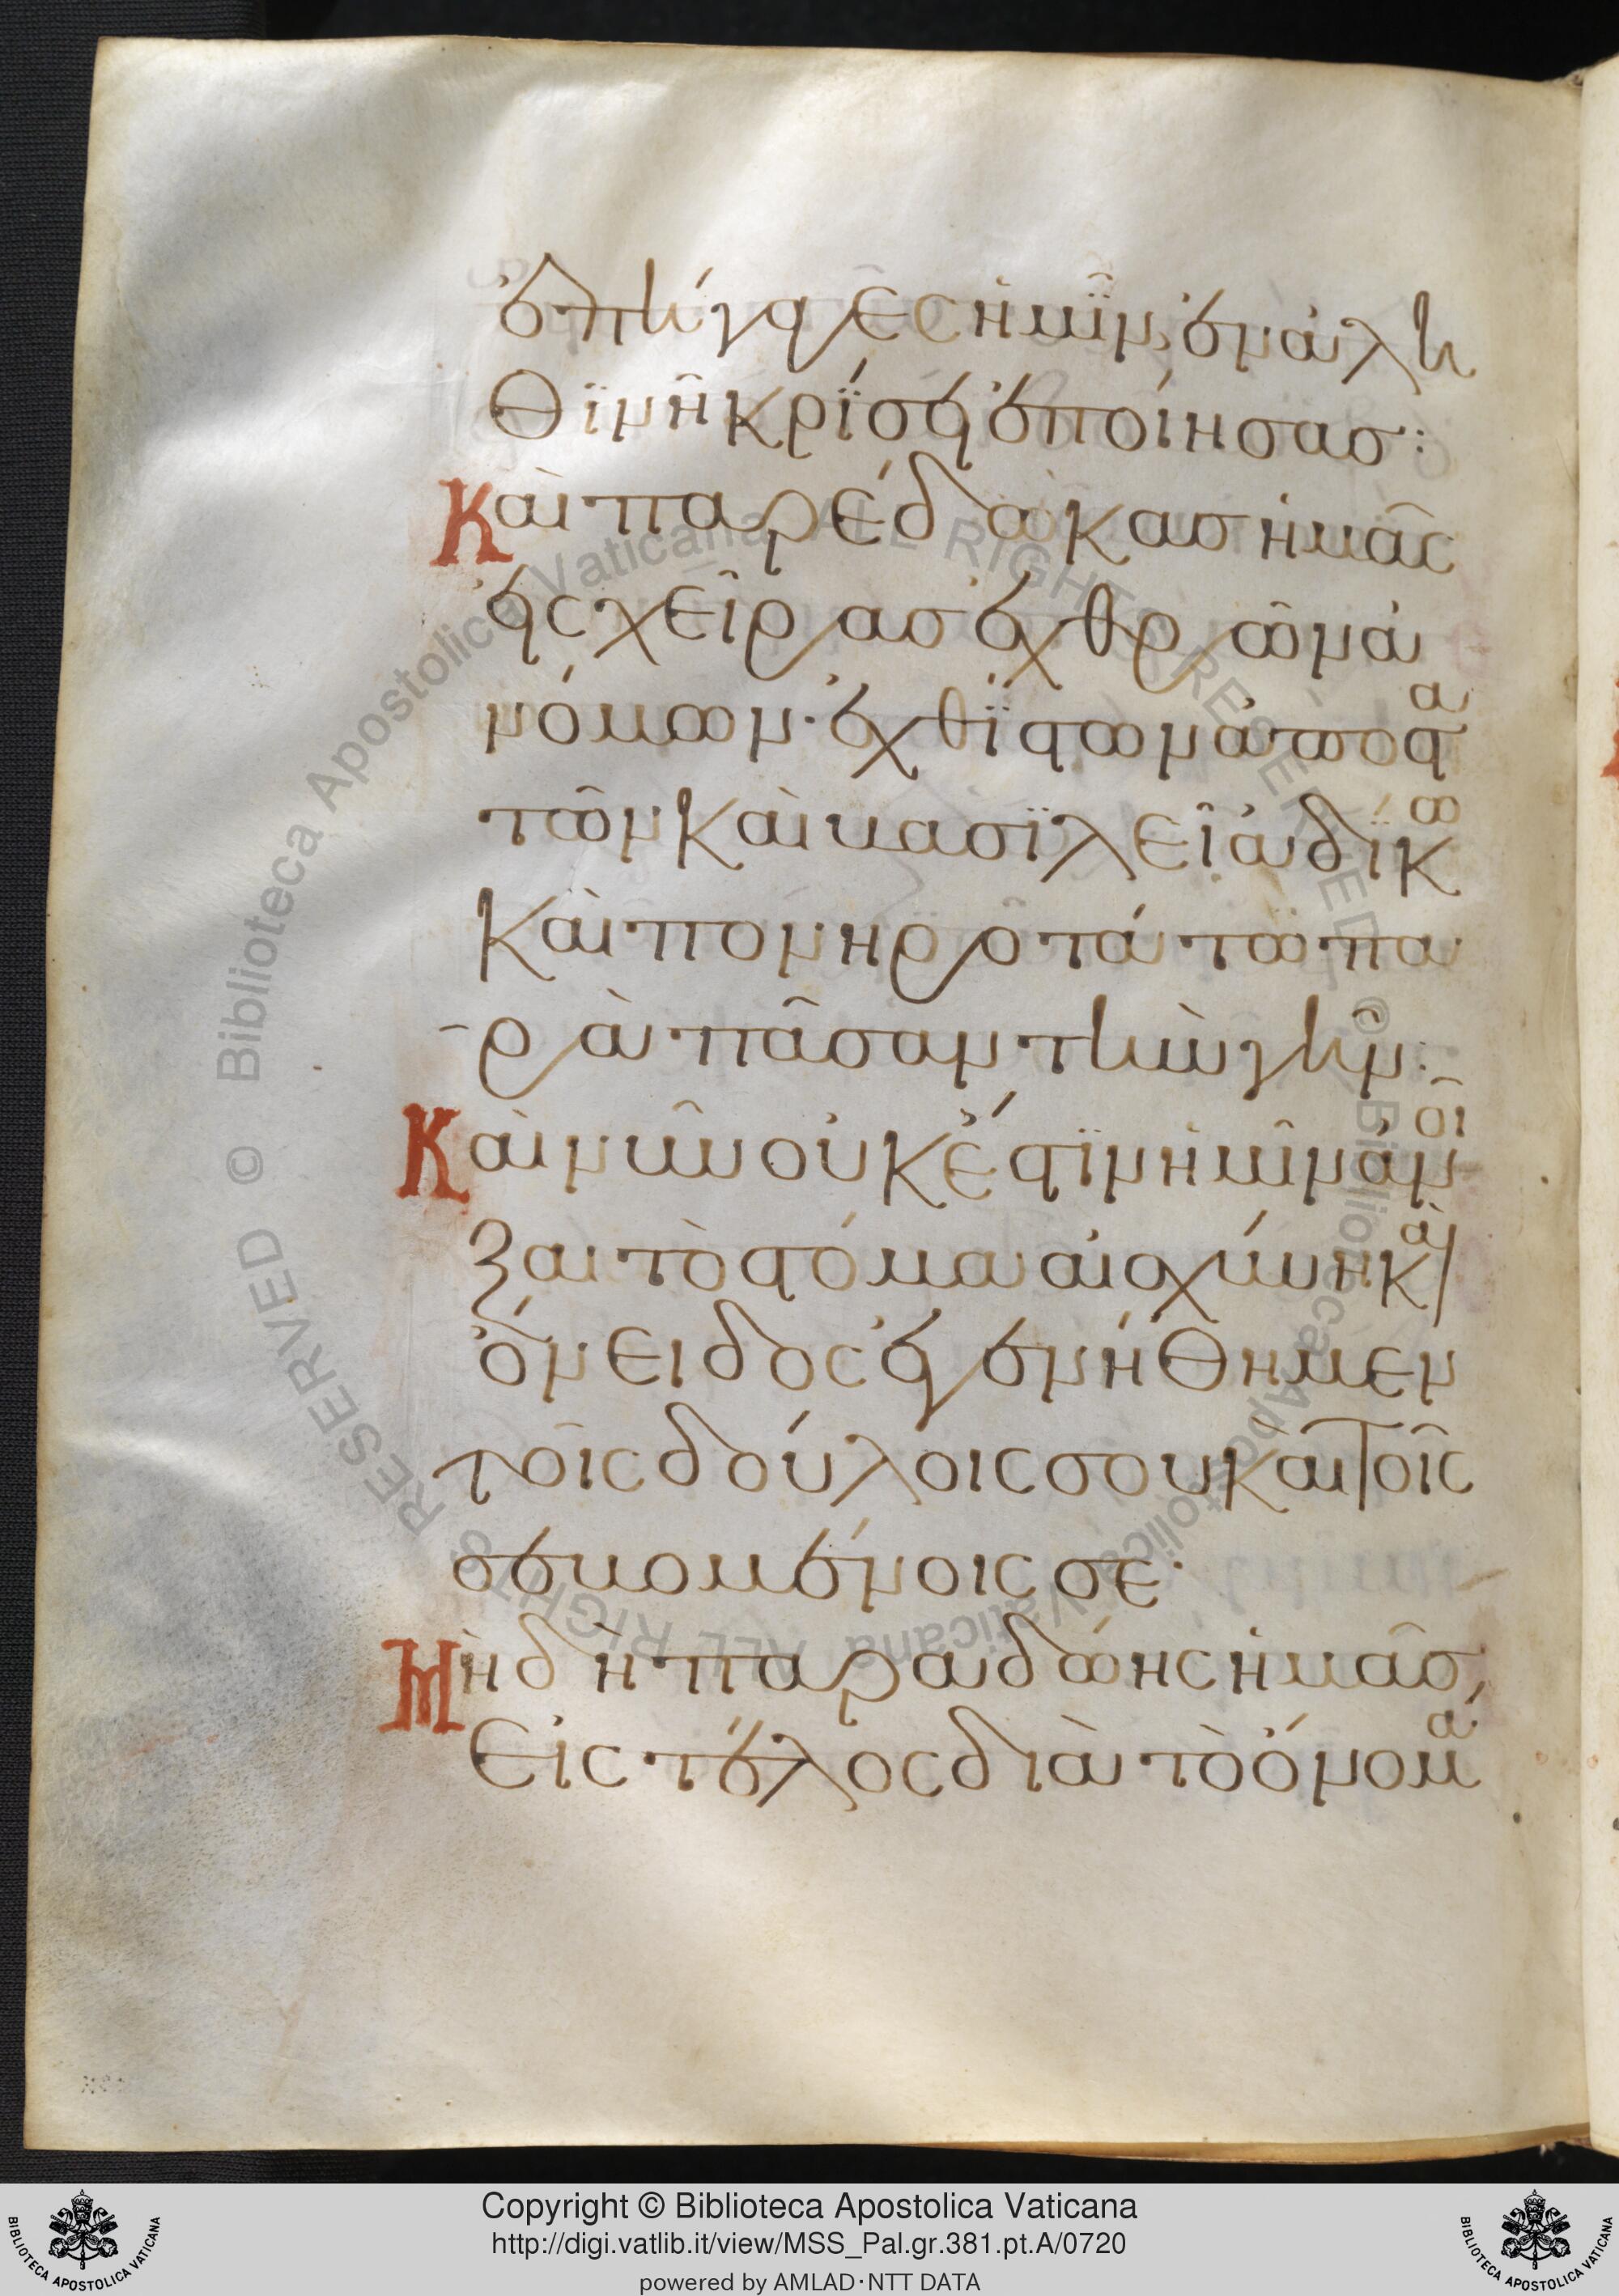 ἐπήγαγες ἡμῖν, ἐν ἀλη
θϊνῆ κρΐσει ἐποίησασ:
Καὶ παρέδωκασ ἡμᾶς
εἰς χεῖρασ ἐχθρῶν ἀ
νόμων· ἐχθΐστων ἀποστα
τῶν καὶ βασϊλεῖ ἀδΐκω
καὶ πονηροτάτω πα
ρὰ πᾶσαν τὴν γῆν:
Καὶ νῦν οὐκ ἔστϊν ἡμῖν ἀνοῖ
ξαι τὸ στόμα αἰσχύνη κὰι
ὄνειδος ἐγενήθημεν
τοῖς δούλοις σου καὶ τοῖς
σεβομένοις σε·
Μὴ δὴ παραδώης ἡμᾶσ,
Εἰς τέλος διὰ τὸ ὄνομά
Copyright © Biblioteca Apostolica Vaticana
http://digi.vatlib.it/view/MSS_Pal.gr.381.pt.A/0720
powered by AMLAD·NTT DATA
BIBLIOTECA APOSTOLICA VATICANA
BIBLIOTECA APOSTOLICA VATICANA
© Biblioteca Apostolica Vaticana ALL RIGHTS RESERVED © Biblioteca Apostolica Vaticana ALL RIGHTS RESERVED